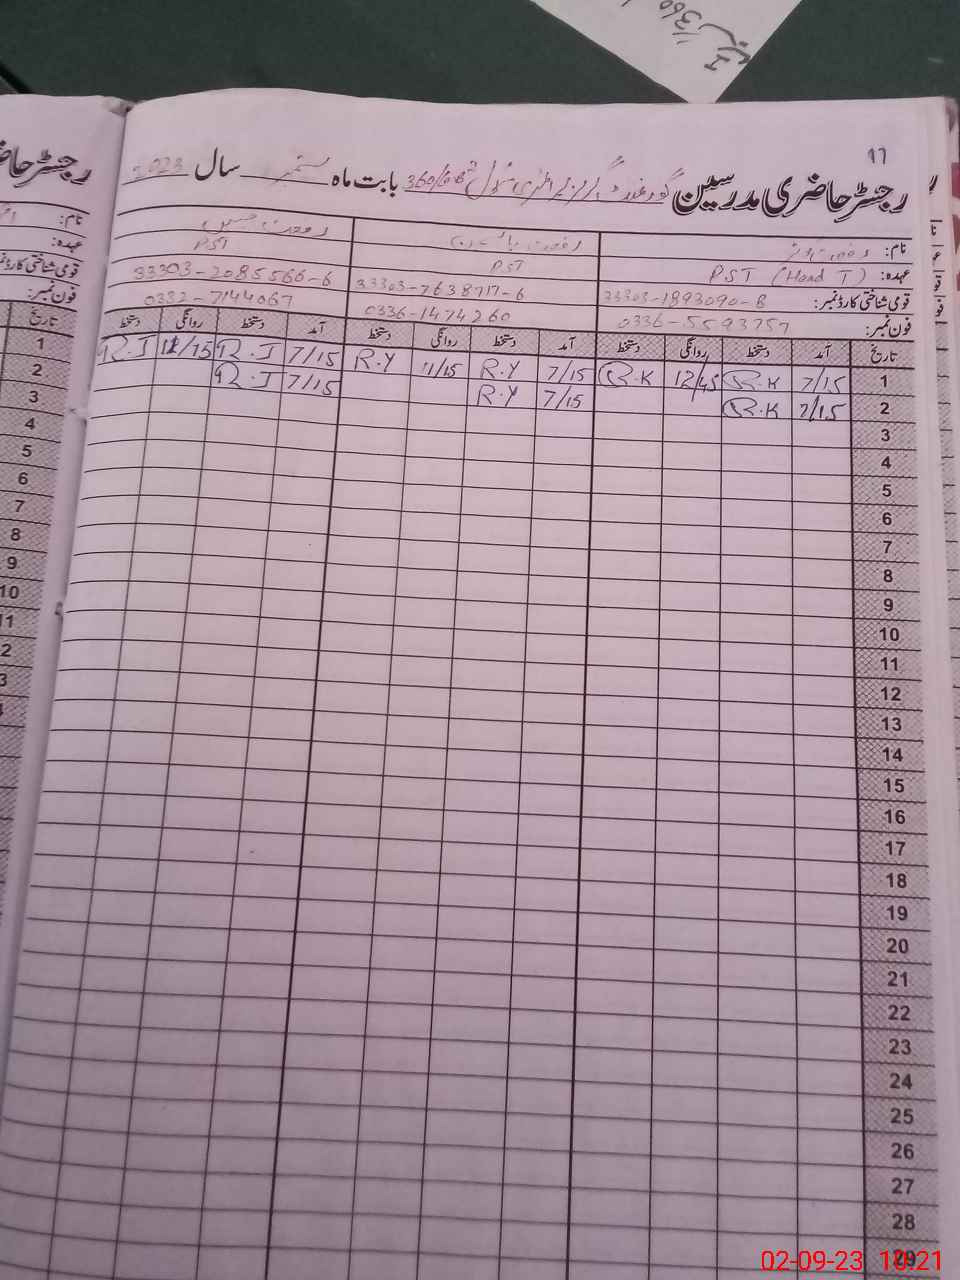 97
رجسٹر حاضری مدرسین گورنمنٹ گرلز پرائمری سکول 360 بابت ماہ ستمبر سال 2023
نام: رفعت
عہدہ: PST (Head T) PST PST
قومی شناختی کارڈ نمبر: 33303-1893090-8 33303-7638717-6 33303-2085566-6
فون نمبر: 0336-5593757 0336-1474260 0332-7144067
تاریخ آمد دستخط روانگی دستخط آمد دستخط روانگی دستخط آمد دستخط روانگی دستخط
1 7/15 R.K 12/45 R.K 7/15 R.Y 11/15 R.Y 7/15 R.I R.I
2 7/15 R.K 7/15 R.Y 7/15 R.I
3
4
5
6
7
8
9
10
11
12
13
14
15
16
17
18
19
20
21
22
23
24
25
26
27
28
29
نام:
عہدہ:
قومی شناختی کارڈ نمبر:
فون نمبر:
تاریخ
1
2
3
4
5
6
7
8
9
10
02-09-23 10:21